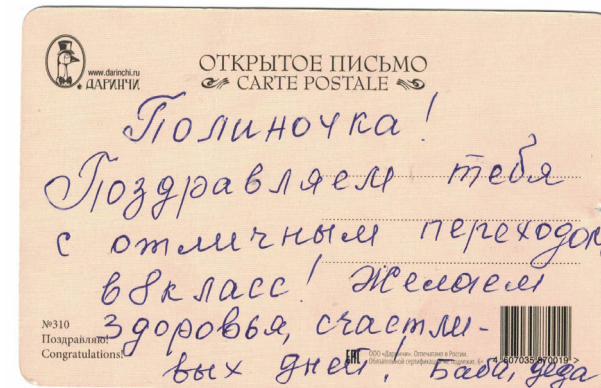 www.darinchi.ru
ДАРИНЧИ
ОТКРЫТОЕ ПИСЬМО
CARTE POSTALE
Полиночка!
Поздравляем тебя
с отличным переходом
в 8 класс! Желаем
здоровья, счастли-
вых дней! Баба, деда
№310
Поздравляю!
Congratulations!
EAC
ООО «Даринчи». Отпечатано в России.
4 607035 870019 >